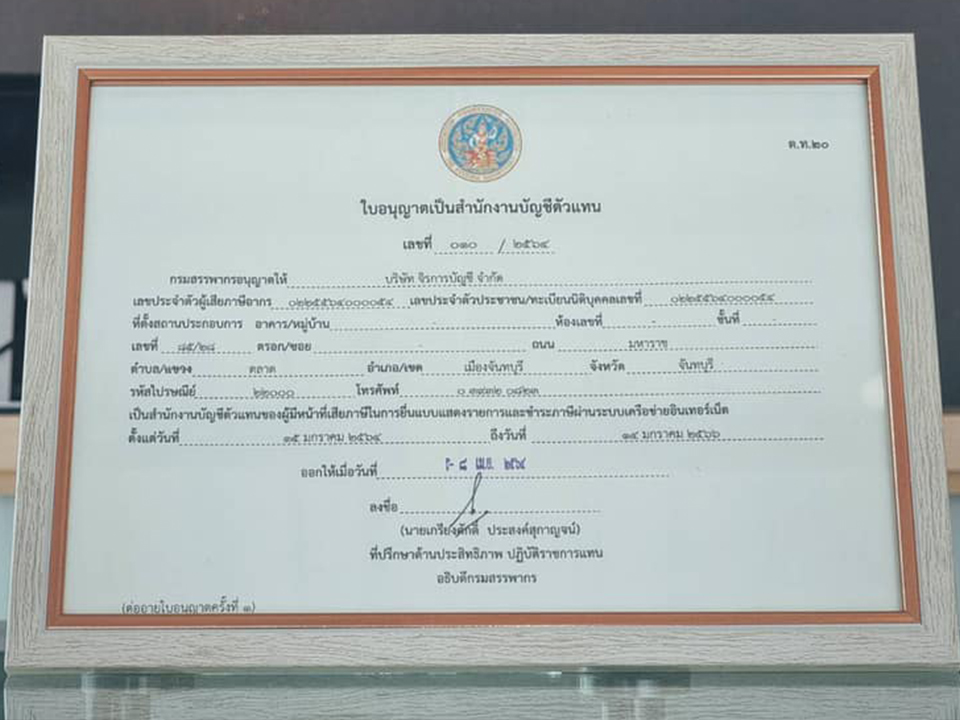 ต.ท.๒๐
ใบอนุญาตเป็นสำนักงานบัญชีตัวแทน
เลขที่ ๐๑๐ / ๒๕๖๔
กรมสรรพากรอนุญาตให้ บริษัท จิรการบัญชี จำกัด
เลขประจำตัวผู้เสียภาษีอากร ๐๒๒๕๕๖๔๐๐๐๐๕๔ เลขประจำตัวประชาชน/ทะเบียนนิติบุคคลเลขที่ ๐๒๒๕๕๖๔๐๐๐๐๕๔
ที่ตั้งสถานประกอบการ อาคาร/หมู่บ้าน - ห้องเลขที่ - ชั้นที่ -
เลขที่ ๘๕/๒๘ ตรอก/ซอย - ถนน มหาราช
ตำบล/แขวง ตลาด อำเภอ/เขต เมืองจันทบุรี จังหวัด จันทบุรี
รหัสไปรษณีย์ ๒๒๐๐๐ โทรศัพท์
เป็นสำนักงานบัญชีตัวแทนของผู้มีหน้าที่เสียภาษีในการยื่นแบบแสดงรายการและชำระภาษีผ่านระบบเครือข่ายอินเทอร์เน็ต
ตั้งแต่วันที่ ๑๕ มกราคม ๒๕๖๔ ถึงวันที่ ๑๔ มกราคม ๒๕๖๖
ออกให้เมื่อวันที่ - ๘ เม.ย. ๒๕๖๔
ลงชื่อ
(นายเกรียงศักดิ์ ประสงค์สุกาญจน์)
ที่ปรึกษาด้านประสิทธิภาพ ปฏิบัติราชการแทน
อธิบดีกรมสรรพากร
(ต่ออายุใบอนุญาตครั้งที่ ๑)